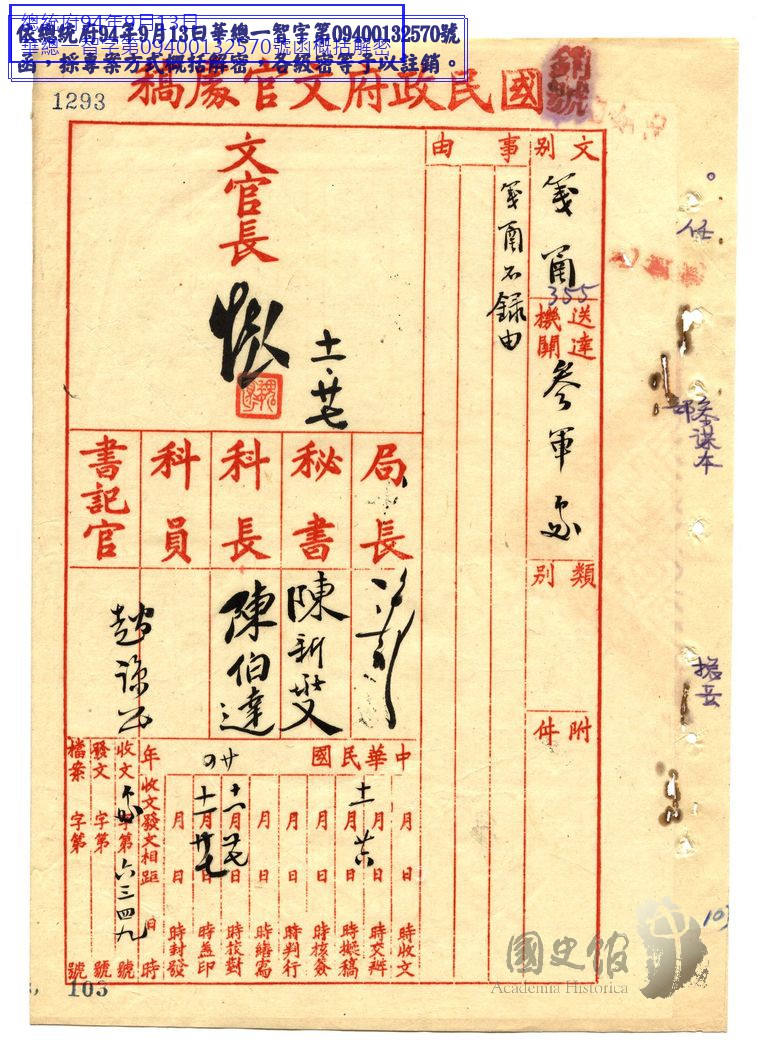 總統府94年9月13日
華總一智字第09400132570號函概括解密
依總統府94年9月13日華總一智字第09400132570號
函，採專案方式概括解密，各級密等予以註銷。
國民政府文官處稿
銷號
1293
文別
箋函
355
送達機關
參軍處
類別
附件
事由
箋函不錄由
文官長
十一、廿七
局長
秘書
陳新燮
科長
陳伯達
科員
書記官
趙
中華民國
廿
年
月日時收文
十一月廿日時交辦
月日時擬稿
月日時核簽
月日時判行
月日時繕寫
十一月廿七日時校對
十一月廿七日時蓋印
月日時封發
收文發文相距 日 時
收文處字第六三四九號
發文 字第 號
檔案 字第 號
任
參謀本部
103
國史館
Academia Historica